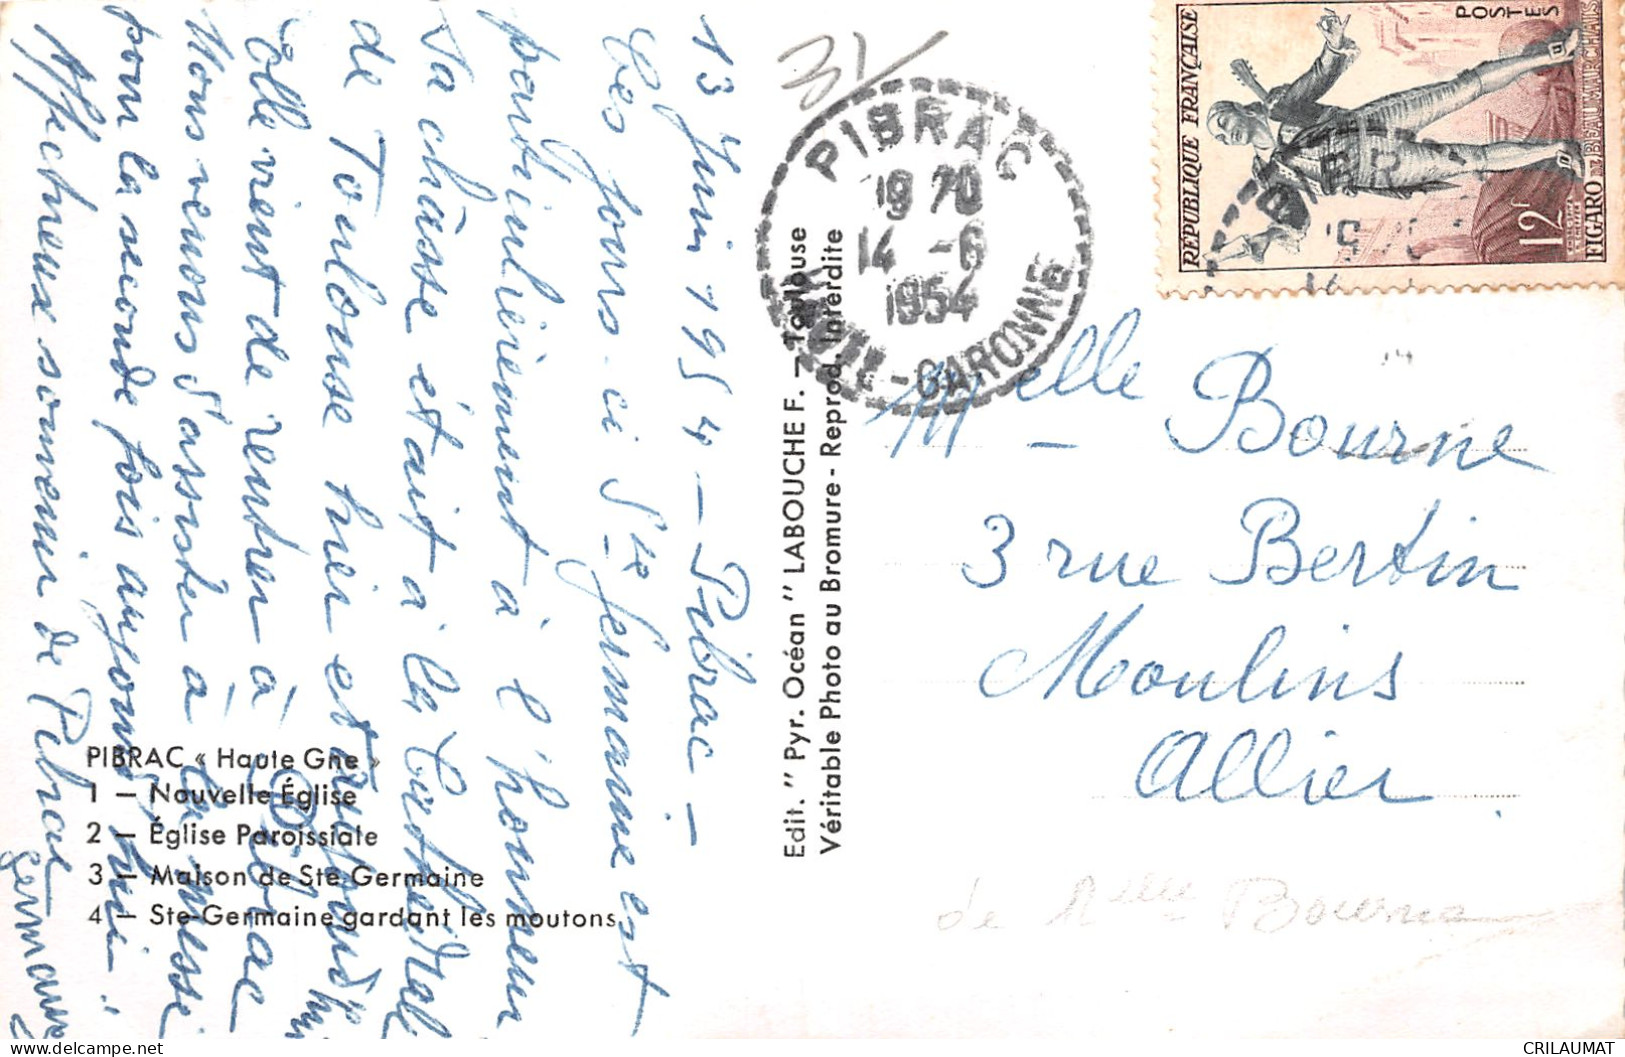 13 Juin 1954 - Pibrac -
Ces jours-ci Ste Germaine est
particulièrement à l'honneur
Sa châsse était à la Cathédrale
de Toulouse hier et aujourd'hui
Elle vient de rentrer à Pibrac
Nous venons d'assister à la messe
pour la seconde fois aujourd'hui
Affectueux souvenir de Pibrac
Germaine
PIBRAC « Haute Gne »
1 — Nouvelle Église
2 — Église Paroissiale
3 — Maison de Ste Germaine
4 — Ste-Germaine gardant les moutons
Edit. " Pyr. Océan " LABOUCHE F. — Toulouse
Véritable Photo au Bromure - Reprod. Interdite
PIBRAC
19 70
14 -6
1954
HAUTE-GARONNE
POSTES
RÉPUBLIQUE FRANÇAISE
12f
FIGARO DE BEAUMARCHAIS
Melle Bourne
3 rue Bertin
Moulins
Allier
de Melle Bourne
CRILAUMAT